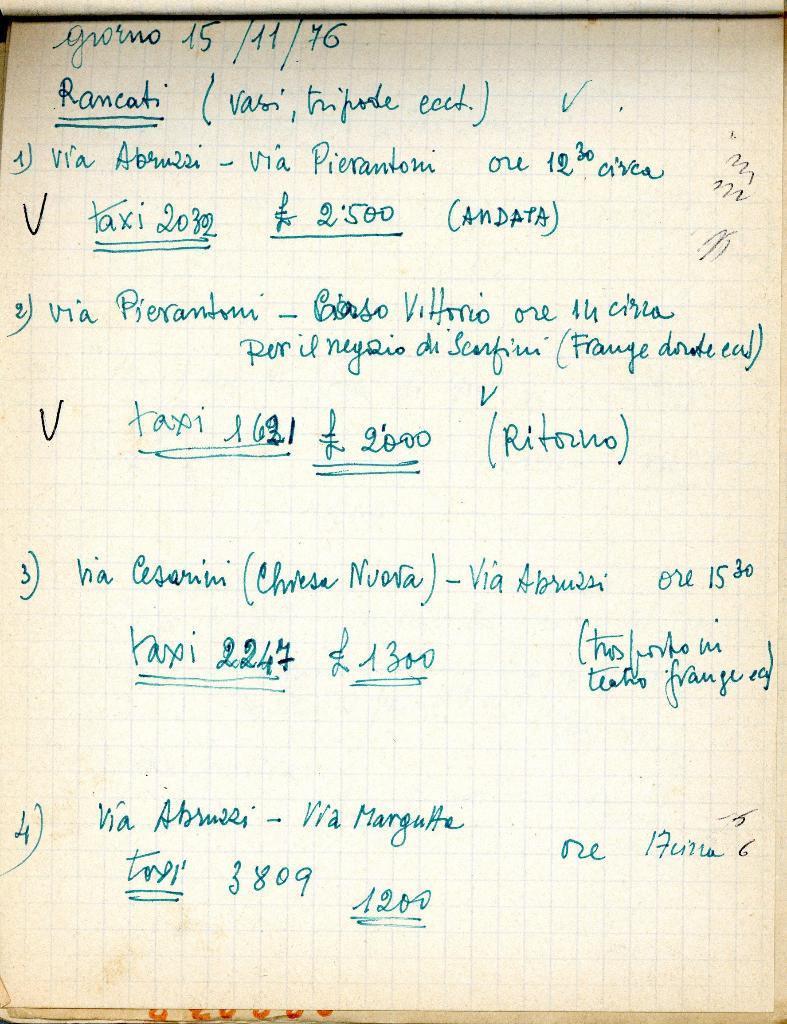 giorno 15/11/76
Rancati (vasi, tripode ecct.) V
1) Via Abruzzi - Via Pierantoni ore 12³⁰ circa
V taxi 2032 £ 2.500 (ANDATA)
2) via Pierantoni - Corso Vittorio ore 14 circa
per il negozio di Scarfini (Frange dorate ecct)
V taxi 1621 £ 2000 V (Ritorno)
3) Via Cesarini (Chiesa Nuova) - Via Abruzzi ore 15³⁰
taxi 2247 £ 1300 (trasporto in
teatro frange ect)
4) Via Abruzzi - Via Margutta
ore 17 circa
taxi 3809
1200